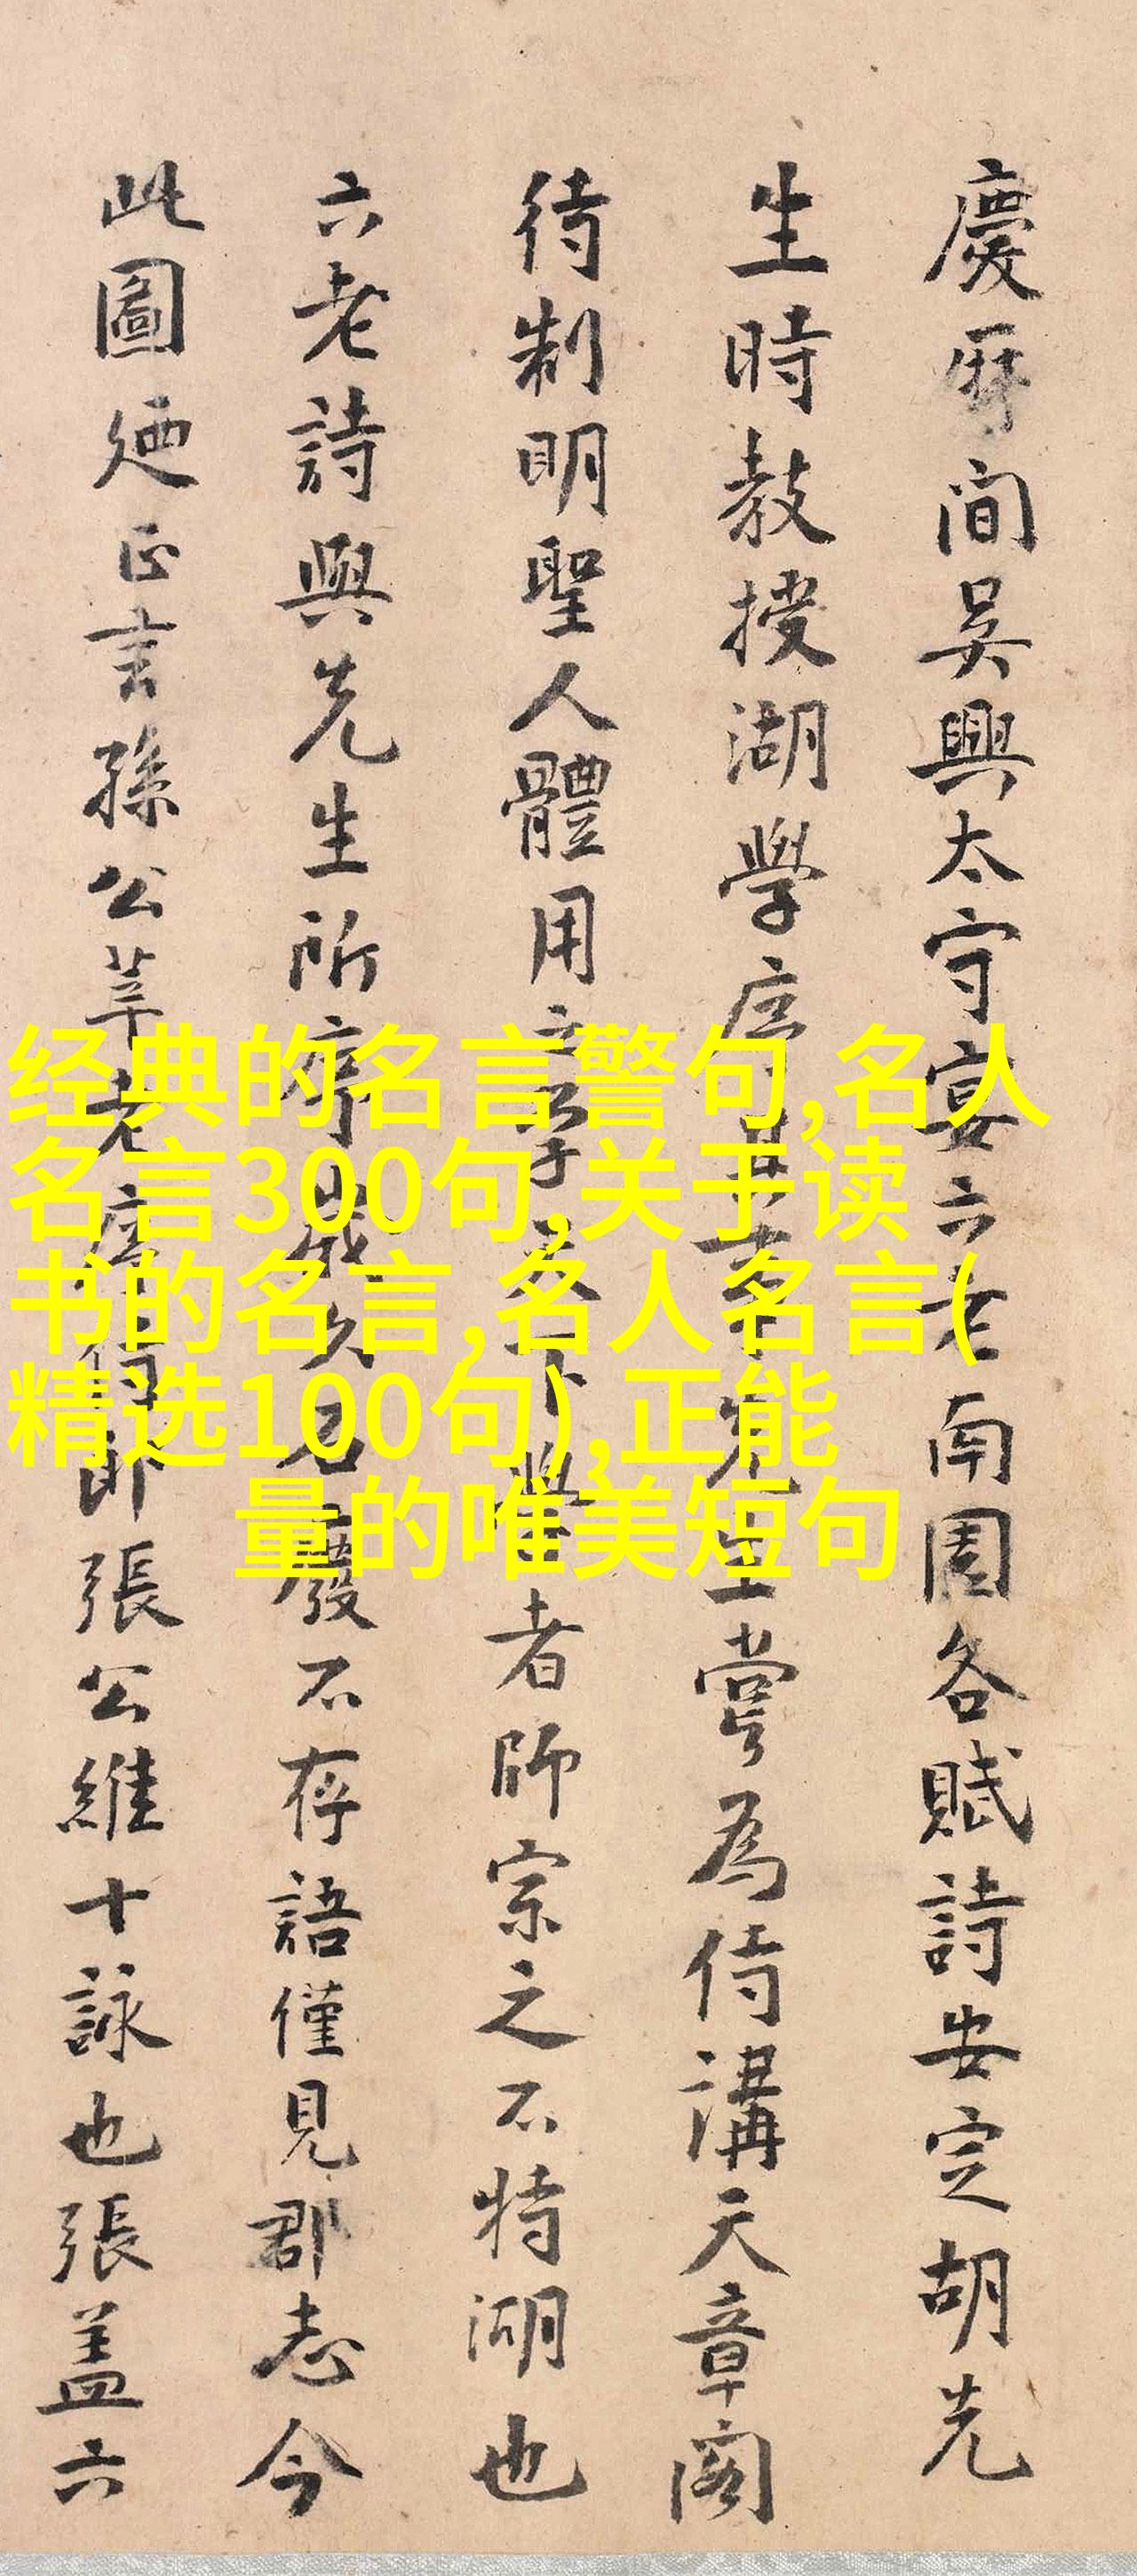 慶曆間吳興太守宴六老南園各賦詩安定胡先
生時教授湖學序其事先生嘗為侍講天章閣
待制明聖人體用之學天下學者師宗之不特湖也
六老詩與先生所序歲久石廢不存語僅見郡志今
此圖迺正言孫公莘老序侍郎張公維十詠也張蓋六
经典的名言警句,名人
名言300句,关于读
书的名言,名人名言(
精选100句),正能
量的唯美短句